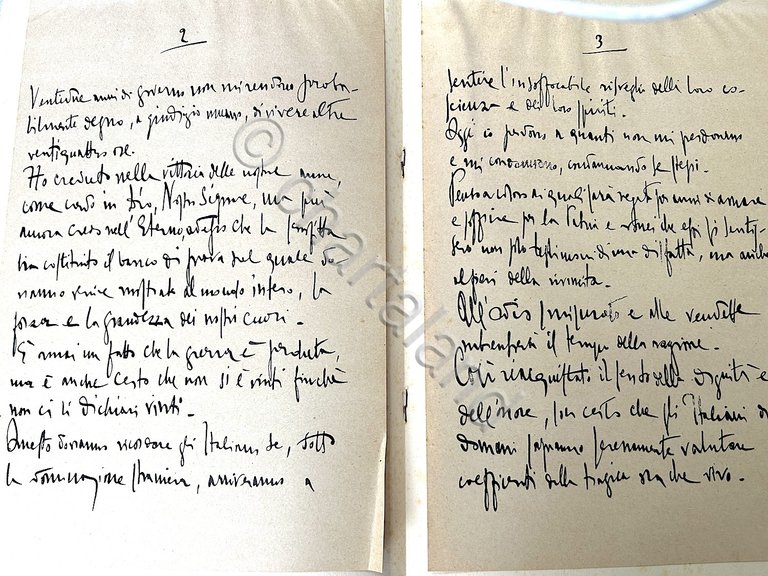 2
Ventidue anni di governo non mi rendono proba-
bilmente degno, a giudizio umano, di vivere altre
ventiquattro ore.
Ho creduto nella vittoria delle nostre armi,
come credo in Dio, Nostro Signore, ma più
ancora credo nell'Eterno, adesso che la sconfitta
ha costituito il banco di prova sul quale do-
vranno venire mostrate al mondo intero, la
forza e la grandezza dei nostri cuori.
È ormai un fatto che la guerra è perduta,
ma è anche certo che non si è vinti finché
non ci si dichiari vinti.
Questo dovranno ricordare gli Italiani se, sotto
la dominazione straniera, arriveranno a
3
sentire l'insoffocabile risveglio della loro co-
scienza e dei loro spiriti.
Oggi io perdono a quanti non mi perdonano
e mi condannano, condannando se stessi.
Penso a coloro ai quali sarà negato per anni di amare
e soffrire per la Patria e vorrei che essi si sentis-
sero non solo testimoni di una disfatta, ma anche
alfieri della rivincita.
All'odio smisurato e alle vendette
subentrerà il tempo della ragione.
Così riacquistato il senso della dignità e
dell'onore, son certo che gli Italiani di
domani sapranno serenamente valutare
coefficienti della tragica ora che vivo.
© chartaland